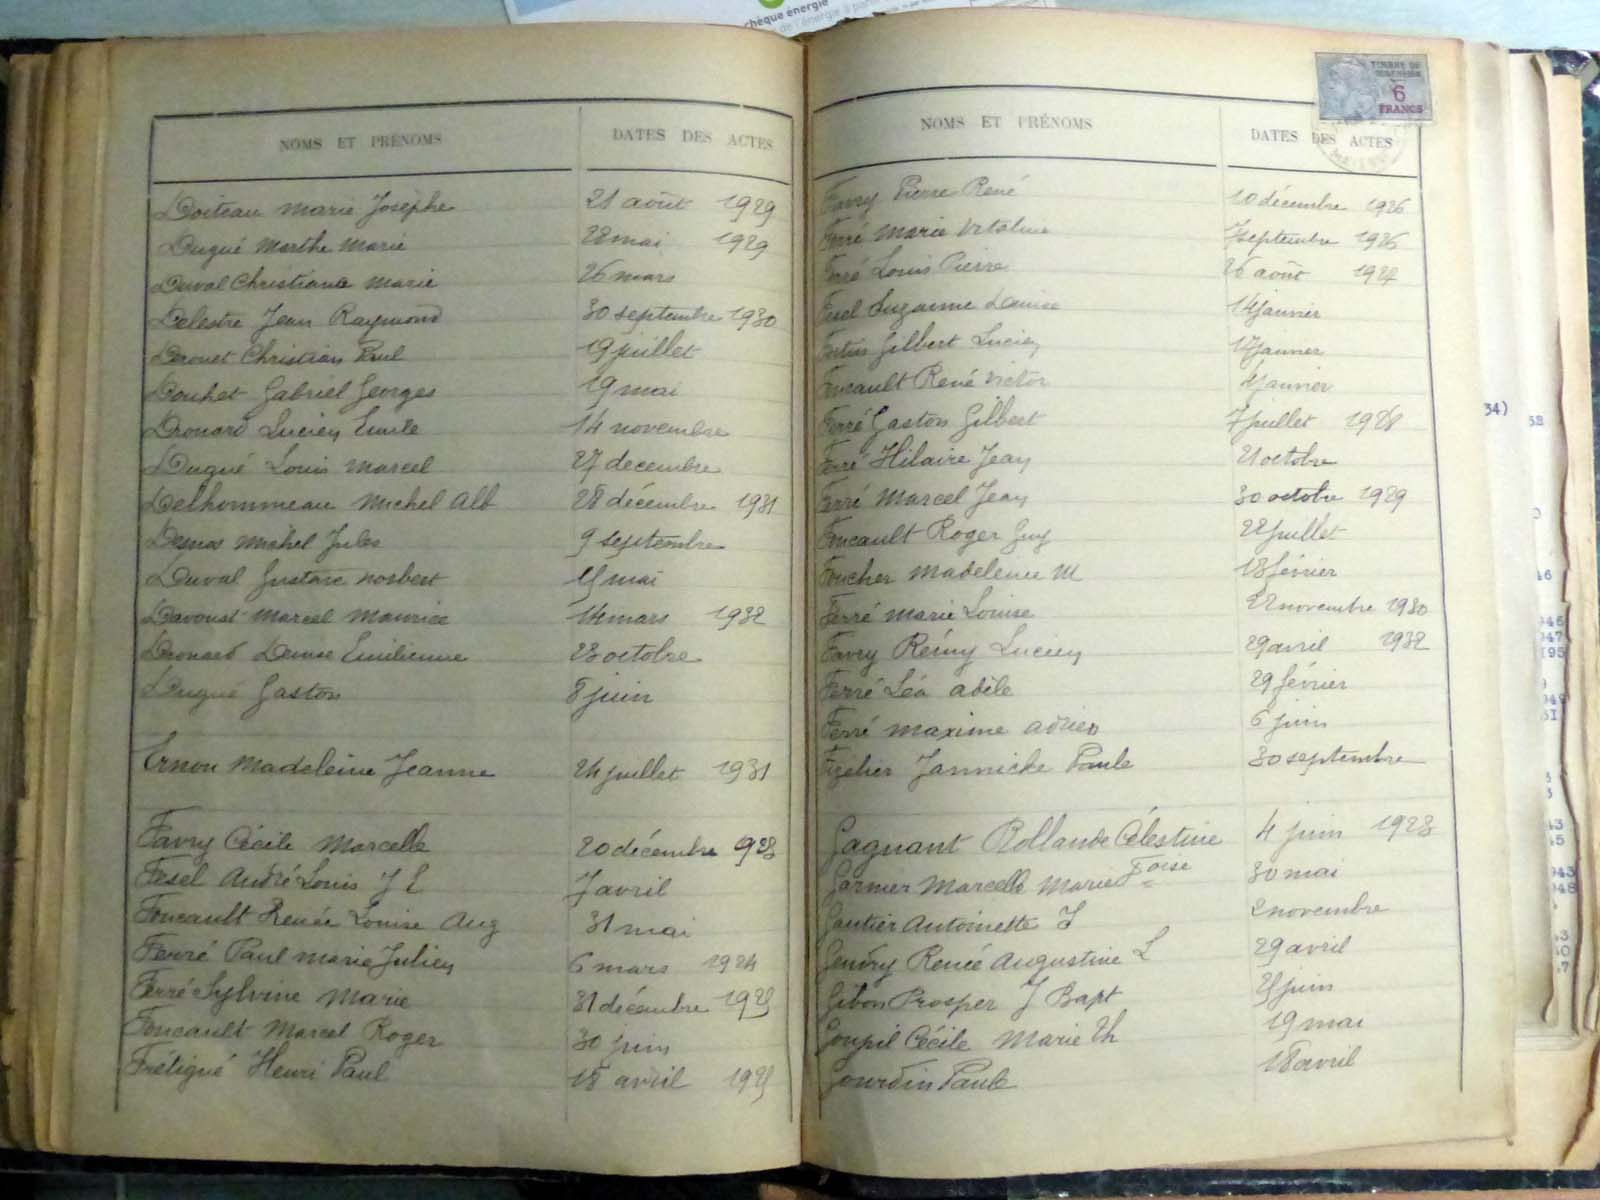 chèque énergie
de l'énergie à
NOMS ET PRÉNOMS DATES DES ACTES
Doiteau Marie Josèphe 21 août 1929
Dugué Marthe Marie 22 mai 1929
Duval Christiane Marie 26 mars
Delestre Jean Raymond 30 septembre 1930
Derouet Christian Paul 19 juillet
Douhet Gabriel Georges 19 mai
Drouard Lucien Emile 14 novembre
Dugué Louis Marcel 27 decembre
Delhommeau Michel Alb 28 décembre 1931
Desnos Michel Jules 9 septembre
Duval Gustave Norbert mai
Davoust Marcel Maurice 14 mars 1932
Drouard Denise Emilienne 23 octobre
Dugué Gaston 8 juin
Ernou Madeleine Jeanne 24 juillet 1931
Favry Cécile Marcelle 20 décembre 1923
Fesel André Louis J E 7 avril
Foucault Renée Louise Aug 31 mai
Ferré Paul Marie Julien 6 mars 1924
Ferré Sylvine Marie 31 décembre 1925
Foucault Marcel Roger 30 juin
Frétigné Henri Paul 18 avril 1925
TIMBRE DE
DIMENSION
6
FRANCS
NOMS ET PRÉNOMS DATES DES ACTES
Favry Pierre René 10 décembre 1926
Ferré Marie Vitaline 7 septembre 1926
Ferré Louis Pierre 26 août 1927
Fesel Suzanne Louise 14 janvier
Gilbert Lucien 17 janvier
Foucault René Victor janvier
Ferré Gaston Gilbert 7 juillet 1928
Ferré Hilaire Jean 21 octobre
Ferré Marcel Jean 30 octobre 1929
Foucault Roger Guy 22 juillet
Foucher Madeleine M 18 février
Ferré Marie Louise 22 novembre 1930
Favry Rémy Lucien 29 avril 1932
Ferré Léa Adèle 29 février
Ferré Maxime Adrien 6 juin
Fizelier Jannicke Paule 30 septembre
Gagnant Rollande Célestine 4 juin 1923
Garnier Marcelle Marie Foise 30 mai
Gautier Antoinette J 2 novembre
Gendry Renée Augustine L 29 avril
Gibon Prosper J Bapt 21 juin
Goupil Cécile Marie Th 19 mai
Gourdin Paule 18 avril
34)